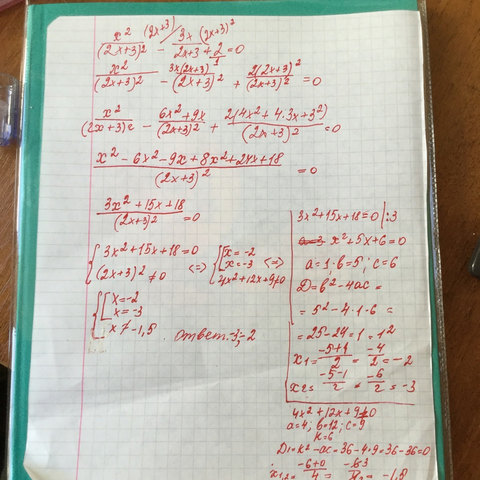 x² / (2x+3)² (2x+3) − 3x (2x+3)² / 2x+3 + 2 = 0
x² / (2x+3)² − 3x(2x+3) / (2x+3)² + 2(2x+3)² / (2x+3)² = 0
x² / (2x+3)² − 6x²+9x / (2x+3)² + 2(4x²+4·3x+3²) / (2x+3)² = 0
x² − 6x² − 9x + 8x² + 24x + 18 / (2x+3)² = 0
3x² + 15x + 18 / (2x+3)² = 0
{ 3x²+15x+18=0 <=> { [ x=-2
(2x+3)² ≠0 x=-3
4x²+12x+9≠0 <=>
{ [ x=-2
x=-3
x ≠ -1,5 ответ: -3; -2
3x²+15x+18=0 |:3
x²+5x+6=0
a=1; b=5; c=6
D=b²-4ac=
=5²-4·1·6=
=25-24=1=1²
x1= -5+1 / 2 = -4 / 2 = -2
x2= -5-1 / 2 = -6 / 2 = -3
4x²+12x+9≠0
a=4; b=12; c=9
k=6
D1=k²-ac=36-4·9=36-36=0
x1,2= -6+0 / 4 = -1,5